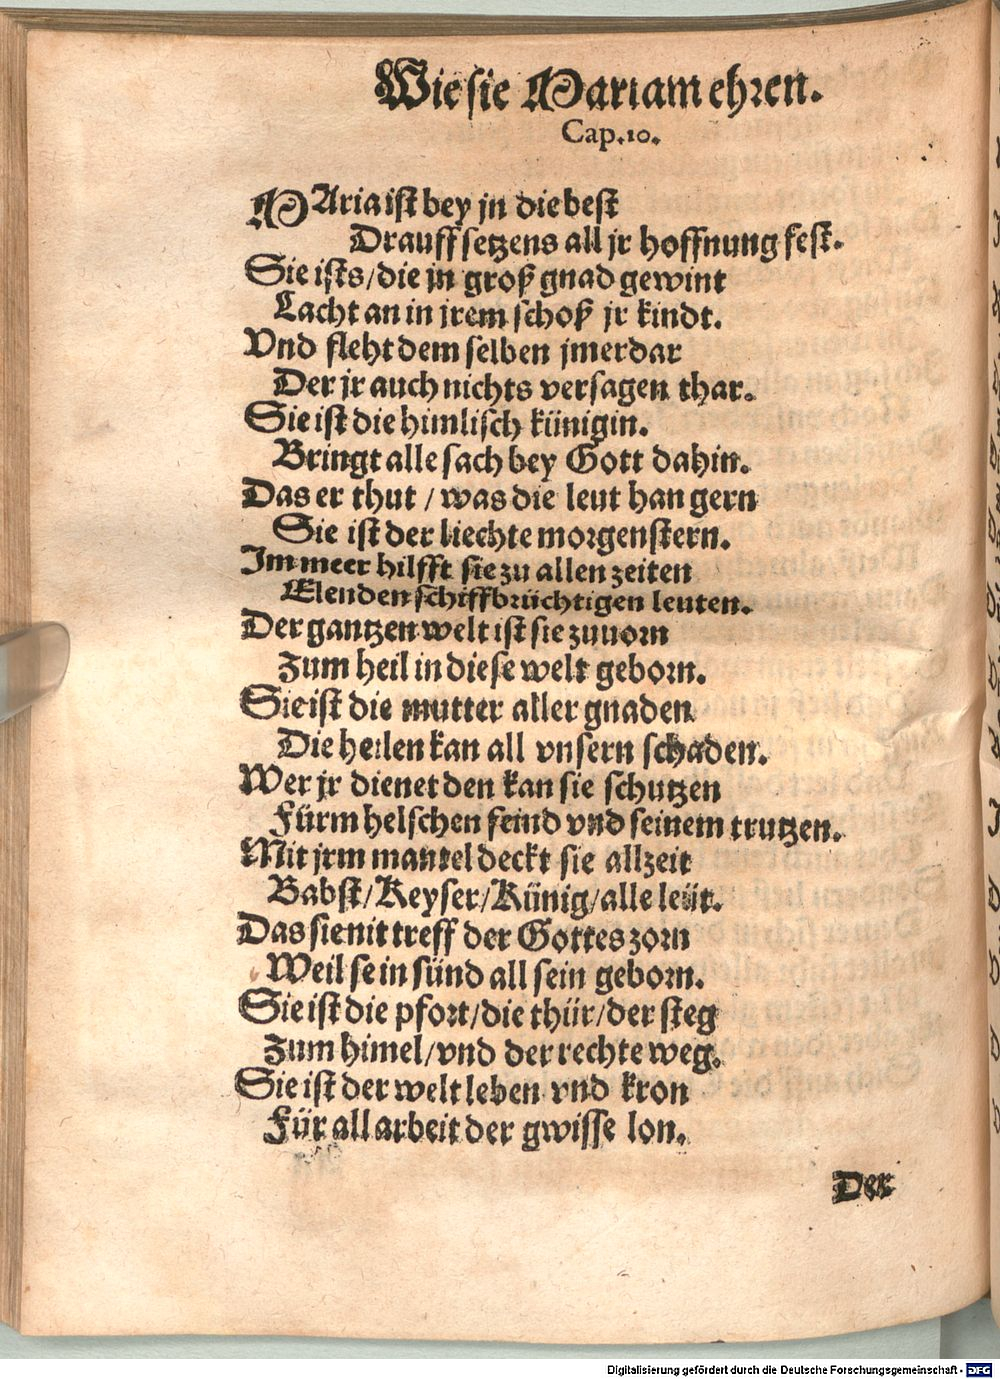 Wie sie Mariam ehren.
Cap. 10.
MAria ist bey jn die best
Drauff setzens all jr hoffnung fest.
Sie ists / die jn groß gnad gewint
Lacht an in jrem schoß jr kindt.
Vnd fleht dem selben jmerdar
Der jr auch nichts versagen thar.
Sie ist die himlisch künigin.
Bringt alle sach bey Gott dahin.
Das er thut / was die leut han gern
Sie ist der liechte morgenstern.
Im meer hilfft sie zu allen zeiten
Elenden schiffbrüchtigen leuten.
Der gantzen welt ist sie zuuorn
Zum heil in diese welt geborn.
Sie ist die mutter aller gnaden
Die heilen kan all vnsern schaden.
Wer jr dienet den kan sie schutzen
Fürm helschen feind vnd seinem trutzen.
Mit jrm mantel deckt sie allzeit
Babst / Keyser / Künig / alle leüt.
Das sie nit treff der Gottes zorn
Weil se in sünd all sein geborn.
Sie ist die pfort / die thür / der steg
Zum himel / vnd der rechte weg.
Sie ist der welt leben vnd kron
Für all arbeit der gwisse lon.
Der
Digitalisierung gefördert durch die Deutsche Forschungsgemeinschaft - DFG